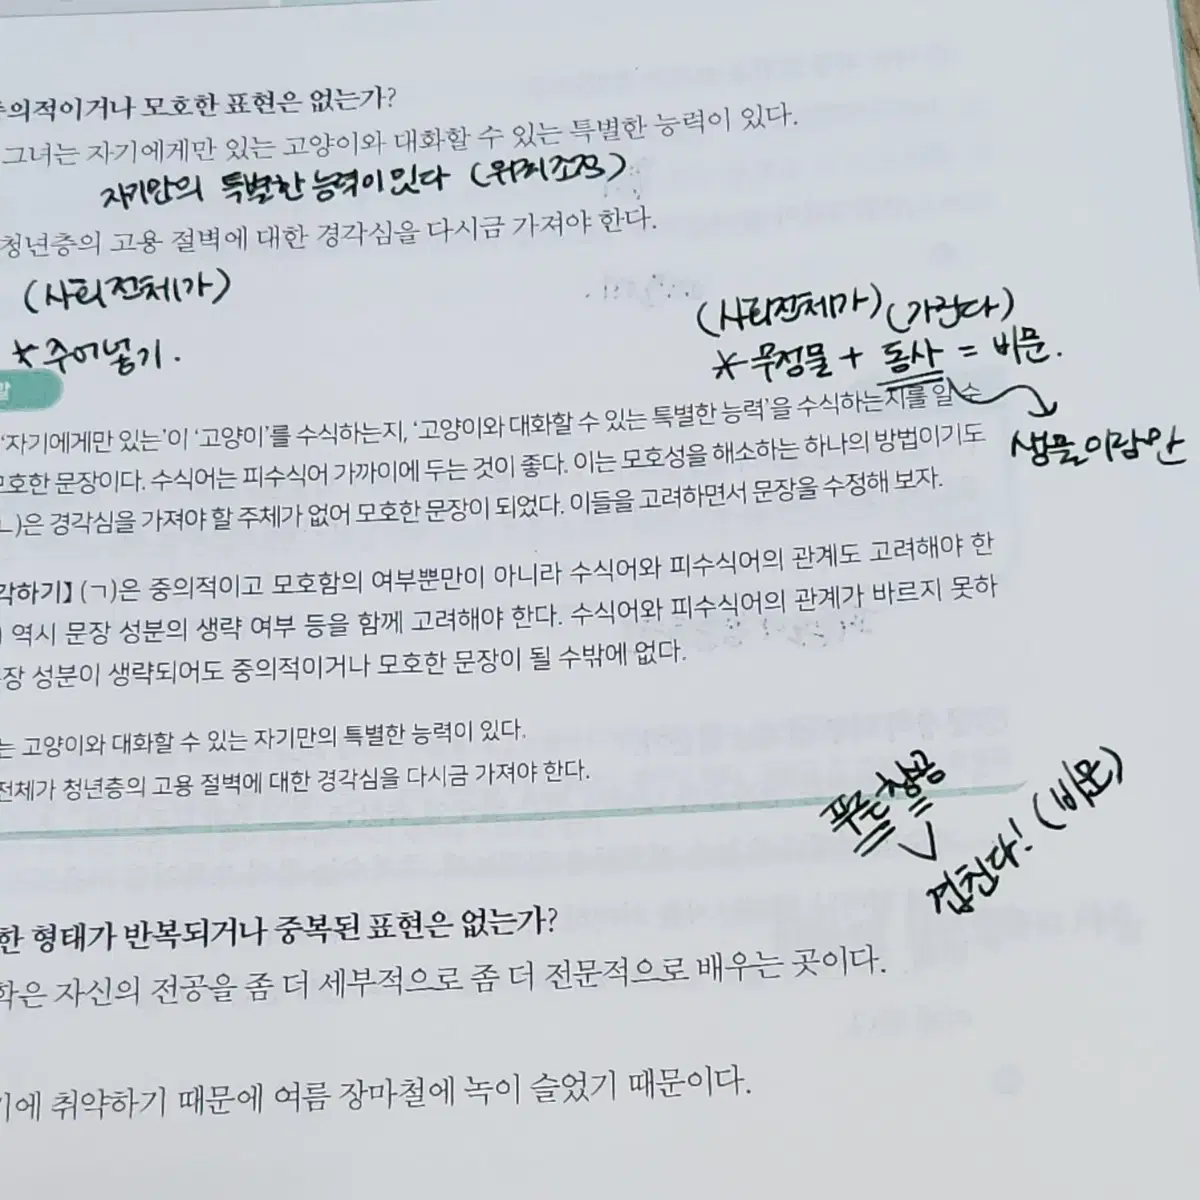 중의적이거나 모호한 표현은 없는가?
그녀는 자기에게만 있는 고양이와 대화할 수 있는 특별한 능력이 있다.
자기만의 특별한 능력이 있다 (위치조정)
청년층의 고용 절벽에 대한 경각심을 다시금 가져야 한다.
(사회전체가)
(사회전체가) (가란다)
* 주어넣기.
* 무정물 + 동사 = 비문.
말
‘자기에게만 있는’이 ‘고양이’를 수식하는지, ‘고양이와 대화할 수 있는 특별한 능력’을 수식하는지를 알 수
생물이람만
모호한 문장이다. 수식어는 피수식어 가까이에 두는 것이 좋다. 이는 모호성을 해소하는 하나의 방법이기도
ㄴ)은 경각심을 가져야 할 주체가 없어 모호한 문장이 되었다. 이들을 고려하면서 문장을 수정해 보자.
각하기】 (ㄱ)은 중의적이고 모호함의 여부뿐만이 아니라 수식어와 피수식어의 관계도 고려해야 한
) 역시 문장 성분의 생략 여부 등을 함께 고려해야 한다. 수식어와 피수식어의 관계가 바르지 못하
문장 성분이 생략되어도 중의적이거나 모호한 문장이 될 수밖에 없다.
는 고양이와 대화할 수 있는 자기만의 특별한 능력이 있다.
전체가 청년층의 고용 절벽에 대한 경각심을 다시금 가져야 한다.
푸른창공
겹친다! (비문)
한 형태가 반복되거나 중복된 표현은 없는가?
학은 자신의 전공을 좀 더 세부적으로 좀 더 전문적으로 배우는 곳이다.
기에 취약하기 때문에 여름 장마철에 녹이 슬었기 때문이다.